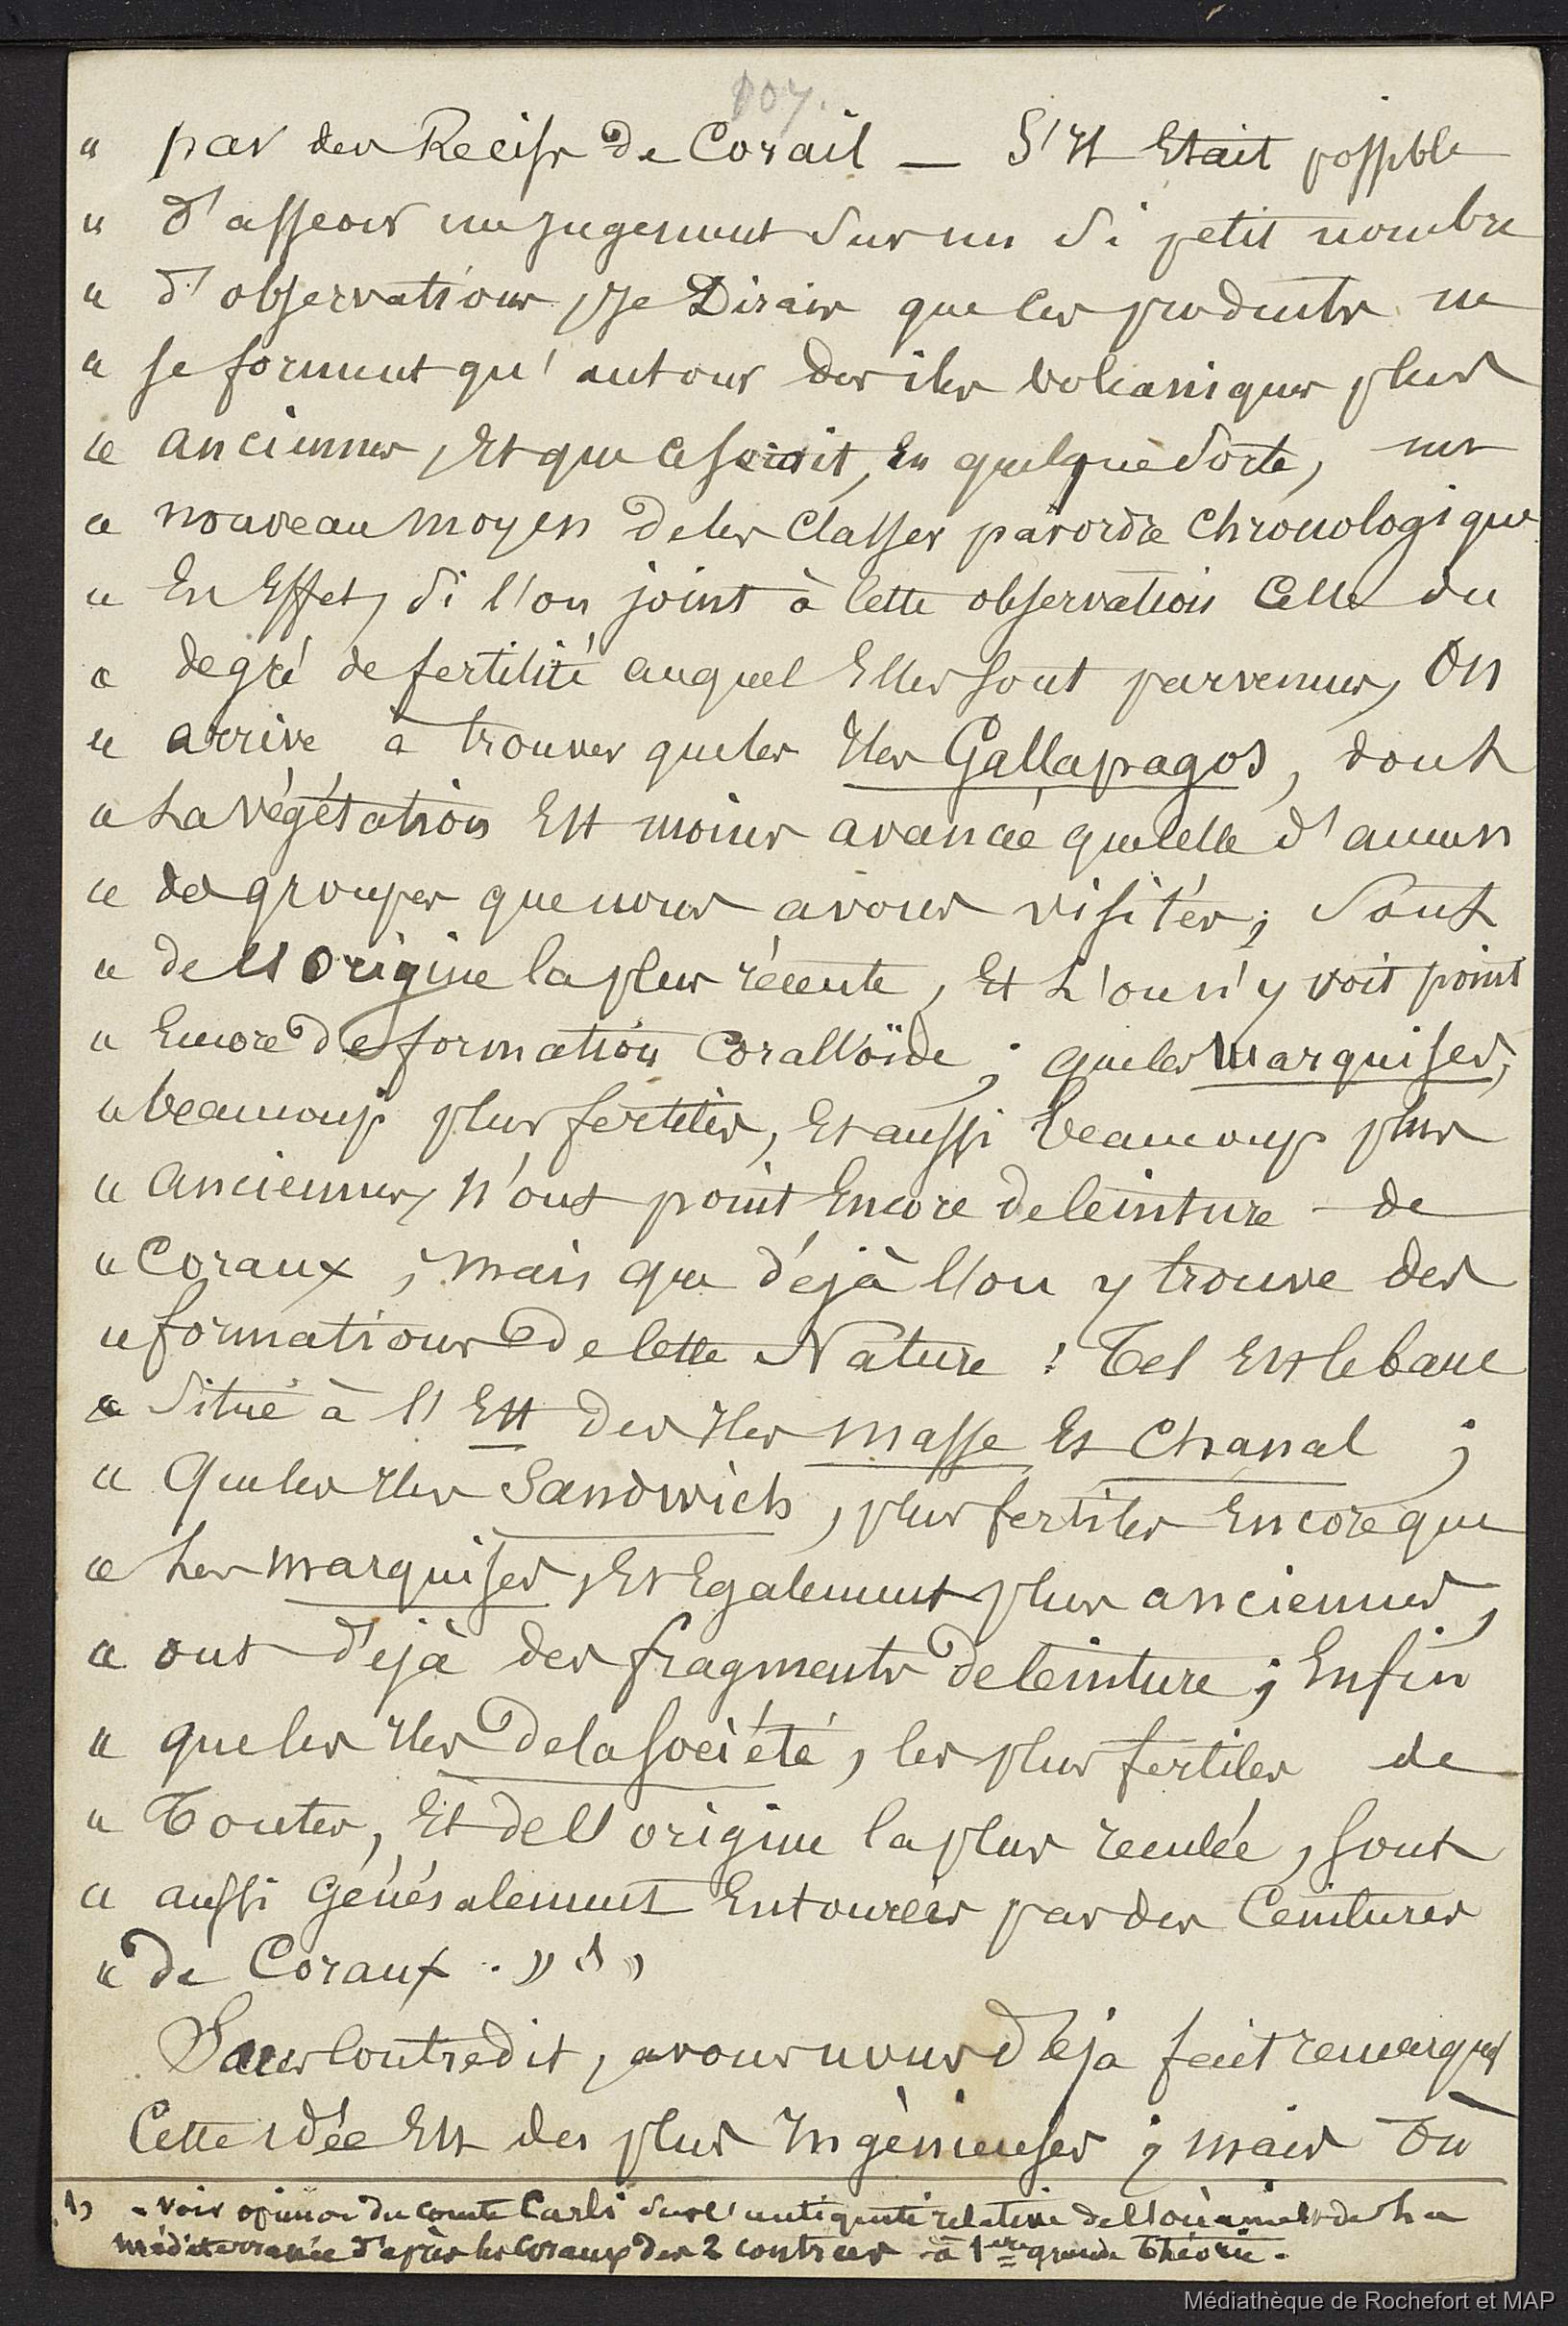 107.
« par des Recifs de Corail — S'Il Etait possible
« d'asseoir un jugement sur un si petit nombre
« d'observations, Je Dirais que ces produits ne
« se forment qu'autour des iles volcaniques plus
« anciennes, Et que ce serait, En quelque sorte, un
« nouveau moyen de les Classer par ordre Chronologique
« En Effet, si l'on joint à Cette observation Celle du
« degré de fertilité auquel Elles sont parvenues, On
« arrive à trouver que les Iles Gallapagos, dont
« La végétation Est moins avancée que celle d'aucun
« des groupes que nous avons visités, sont
« de l'Origine la plus récente, Et L'on n'y voit point
« Encore de formation Coralloïde ; que les Marquises,
« beaucoup plus fertiles, Et aussi beaucoup plus
« anciennes, N'ont point Encore de Ceinture de
« Coraux ; Mais que déjà l'on y trouve des
« formations de Cette Nature : Tel Est le banc
« situé à l'Est des Iles Masse Et Chanal ;
« Que les Iles Sandwich, plus fertiles Encore que
« Les Marquises, Et Egalement plus anciennes,
« ont déjà des fragments de Ceinture ; Enfin
« que les Iles de la Société, les plus fertiles de
« Toutes, Et de l'origine la plus reculée, sont
« aussi Généralement Entourées par des Ceintures
« de Coraux . » 1)
Sans Contredit, avons nous déja fait remarquer
Cette idée Est des plus Ingénieuses ; mais Où
1) - Voir opinion du comte Carli sur l'antiquité relative de l'océanie & de La
méditerranée d'après les Coraux des 2 contrées à 1ère grande Théorie.
Médiathèque de Rochefort et MAP